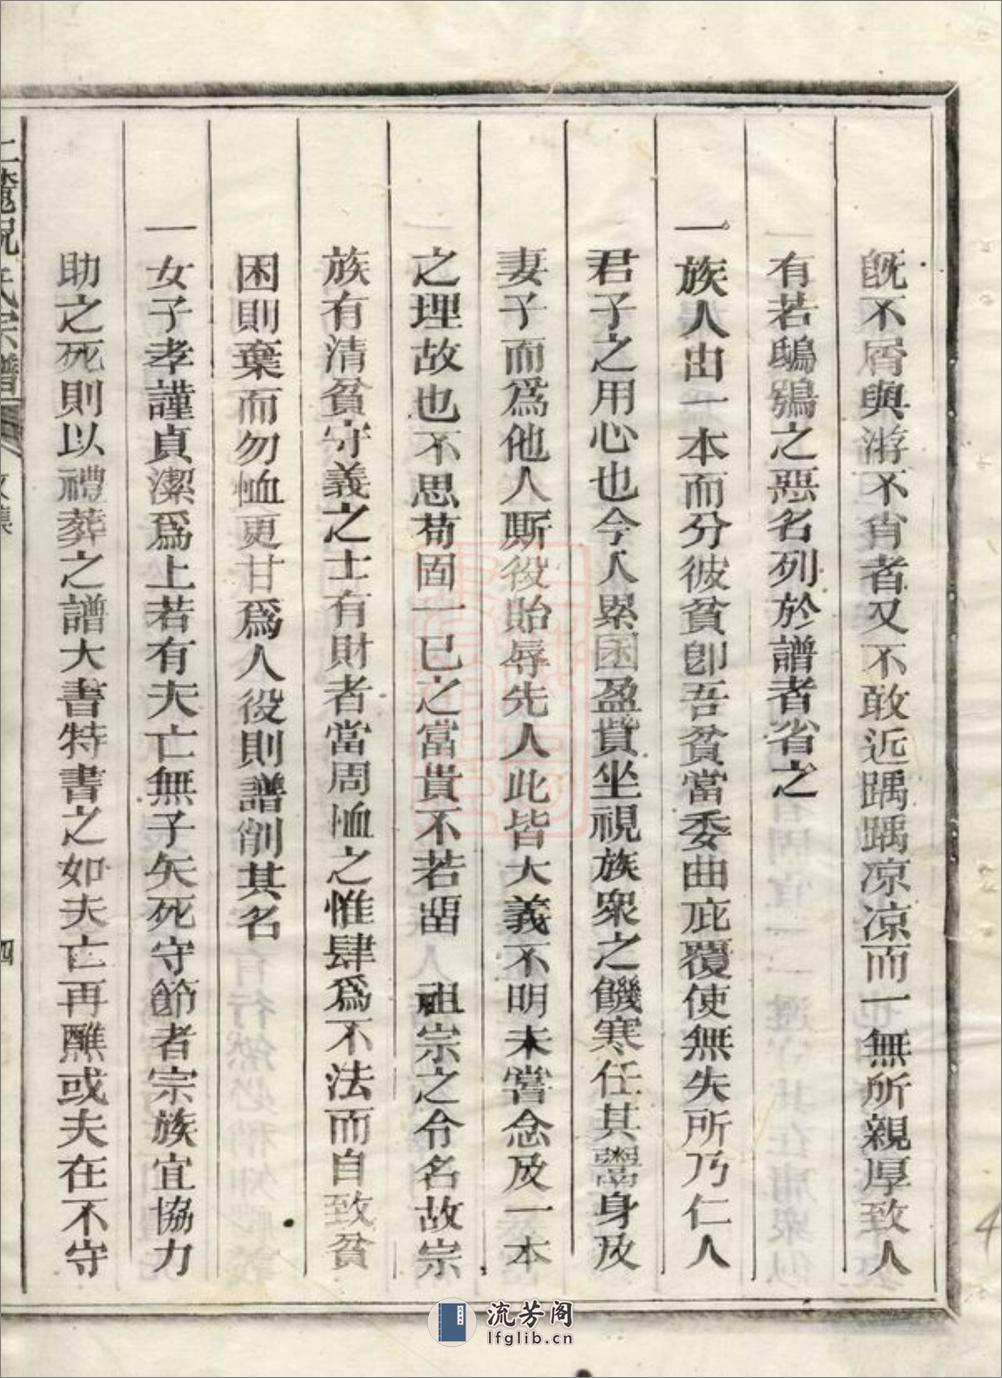 既不屑與游不肖者又不敢近踽踽凉凉而一無所親厚致人
有若鴟鴞之惡名列於譜者省之
一族人出一本而分彼貧卽吾貧當委曲庇覆使無失所乃仁人
君子之用心也今人累囷盈貲坐視族衆之饑寒任其鬻身及
妻子而爲他人厮役貽辱先人此皆大義不明未嘗念及一本
之理故也不思苟固一已之富貴不若留 祖宗之令名故宗
族有清貧守義之士有財者當周恤之惟肆爲不法而自致貧
困則棄而勿恤更甘爲人役則譜削其名
一女子孝謹貞潔爲上若有夫亡無子矢死守節者宗族宜協力
助之死則以禮葬之譜大書特書之如夫亡再醮或夫在不守
氏宗譜
四
流芳阁
lfglib.cn